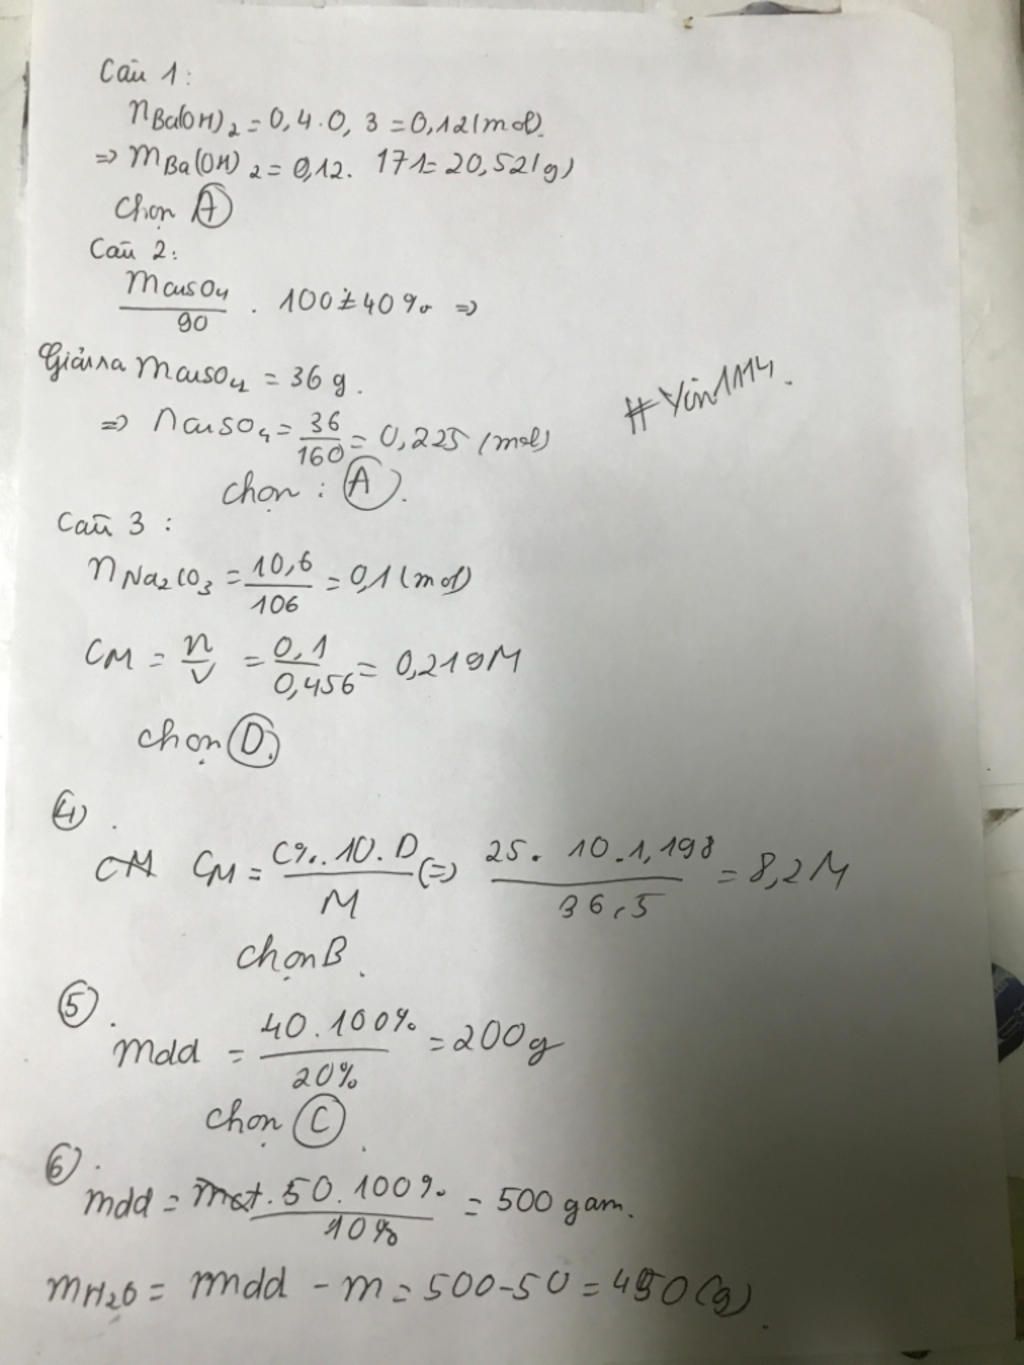 Câu 1:
nBa(OH)2 = 0,4.0,3 = 0,12(mol).
=> mBa(OH)2 = 0,12. 171= 20,52(g)
Chọn A
Câu 2:
mCuSO4/90 . 100% = 40% =>
Giải ra mCuSO4 = 36g.
=> nCuSO4 = 36/160 = 0,225 (mol)
#Yin1114.
chọn : A.
Câu 3 :
nNa2CO3 = 10,6/106 = 0,1(mol)
CM = n/V = 0,1/0,456 = 0,219M
chọn D.
4.
CM CM = C%.10.D/M (=) 25.10.1,198/36,5 = 8,2M
chọn B.
5.
mdd = 40.100%/20% = 200g
chọn C.
6.
mdd = mct.50.100%/10% = 500 gam.
mH2O = mdd - m = 500-50 = 450(g).